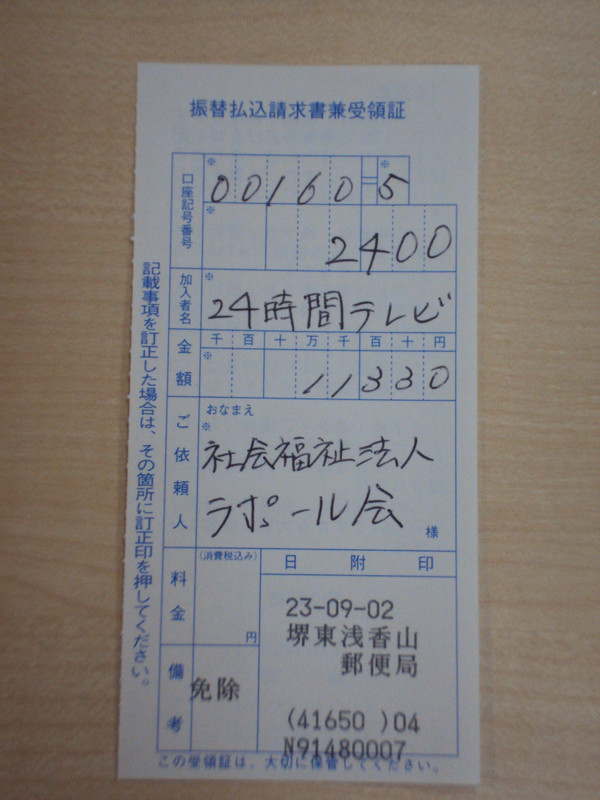 振替払込請求書兼受領証
口座記号番号
※ ※
00160=5
※
2400
加入者名
※
24時間テレビ
金額
千百十万千百十円
※
11330
ご依頼人
おなまえ
※
社会福祉法人
ラポール会
様
料金
(消費税込み)
円
備考
免除
日附印
23-09-02
堺東浅香山
郵便局
(41650 )04
N91480007
記載事項を訂正した場合は、その箇所に訂正印を押してください。
この受領証は、大切に保管してください。